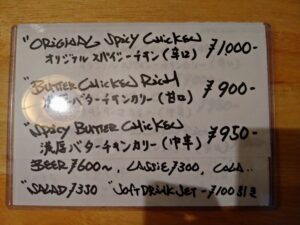 "ORIGINAL SPICY CHICKEN ¥1,000-
オリジナル スパイシーチキン (辛口)
"BUTTER CHICKEN RICH ¥900-
濃厚バターチキンカリー (甘口)
"SPICY BUTTER CHICKEN ¥950-
濃厚バターチキンカリー (中辛)
BEER ¥600~, LASSIE ¥300, COLA..
"SALAD ¥350 "SOFT DRINK SET -¥100引き